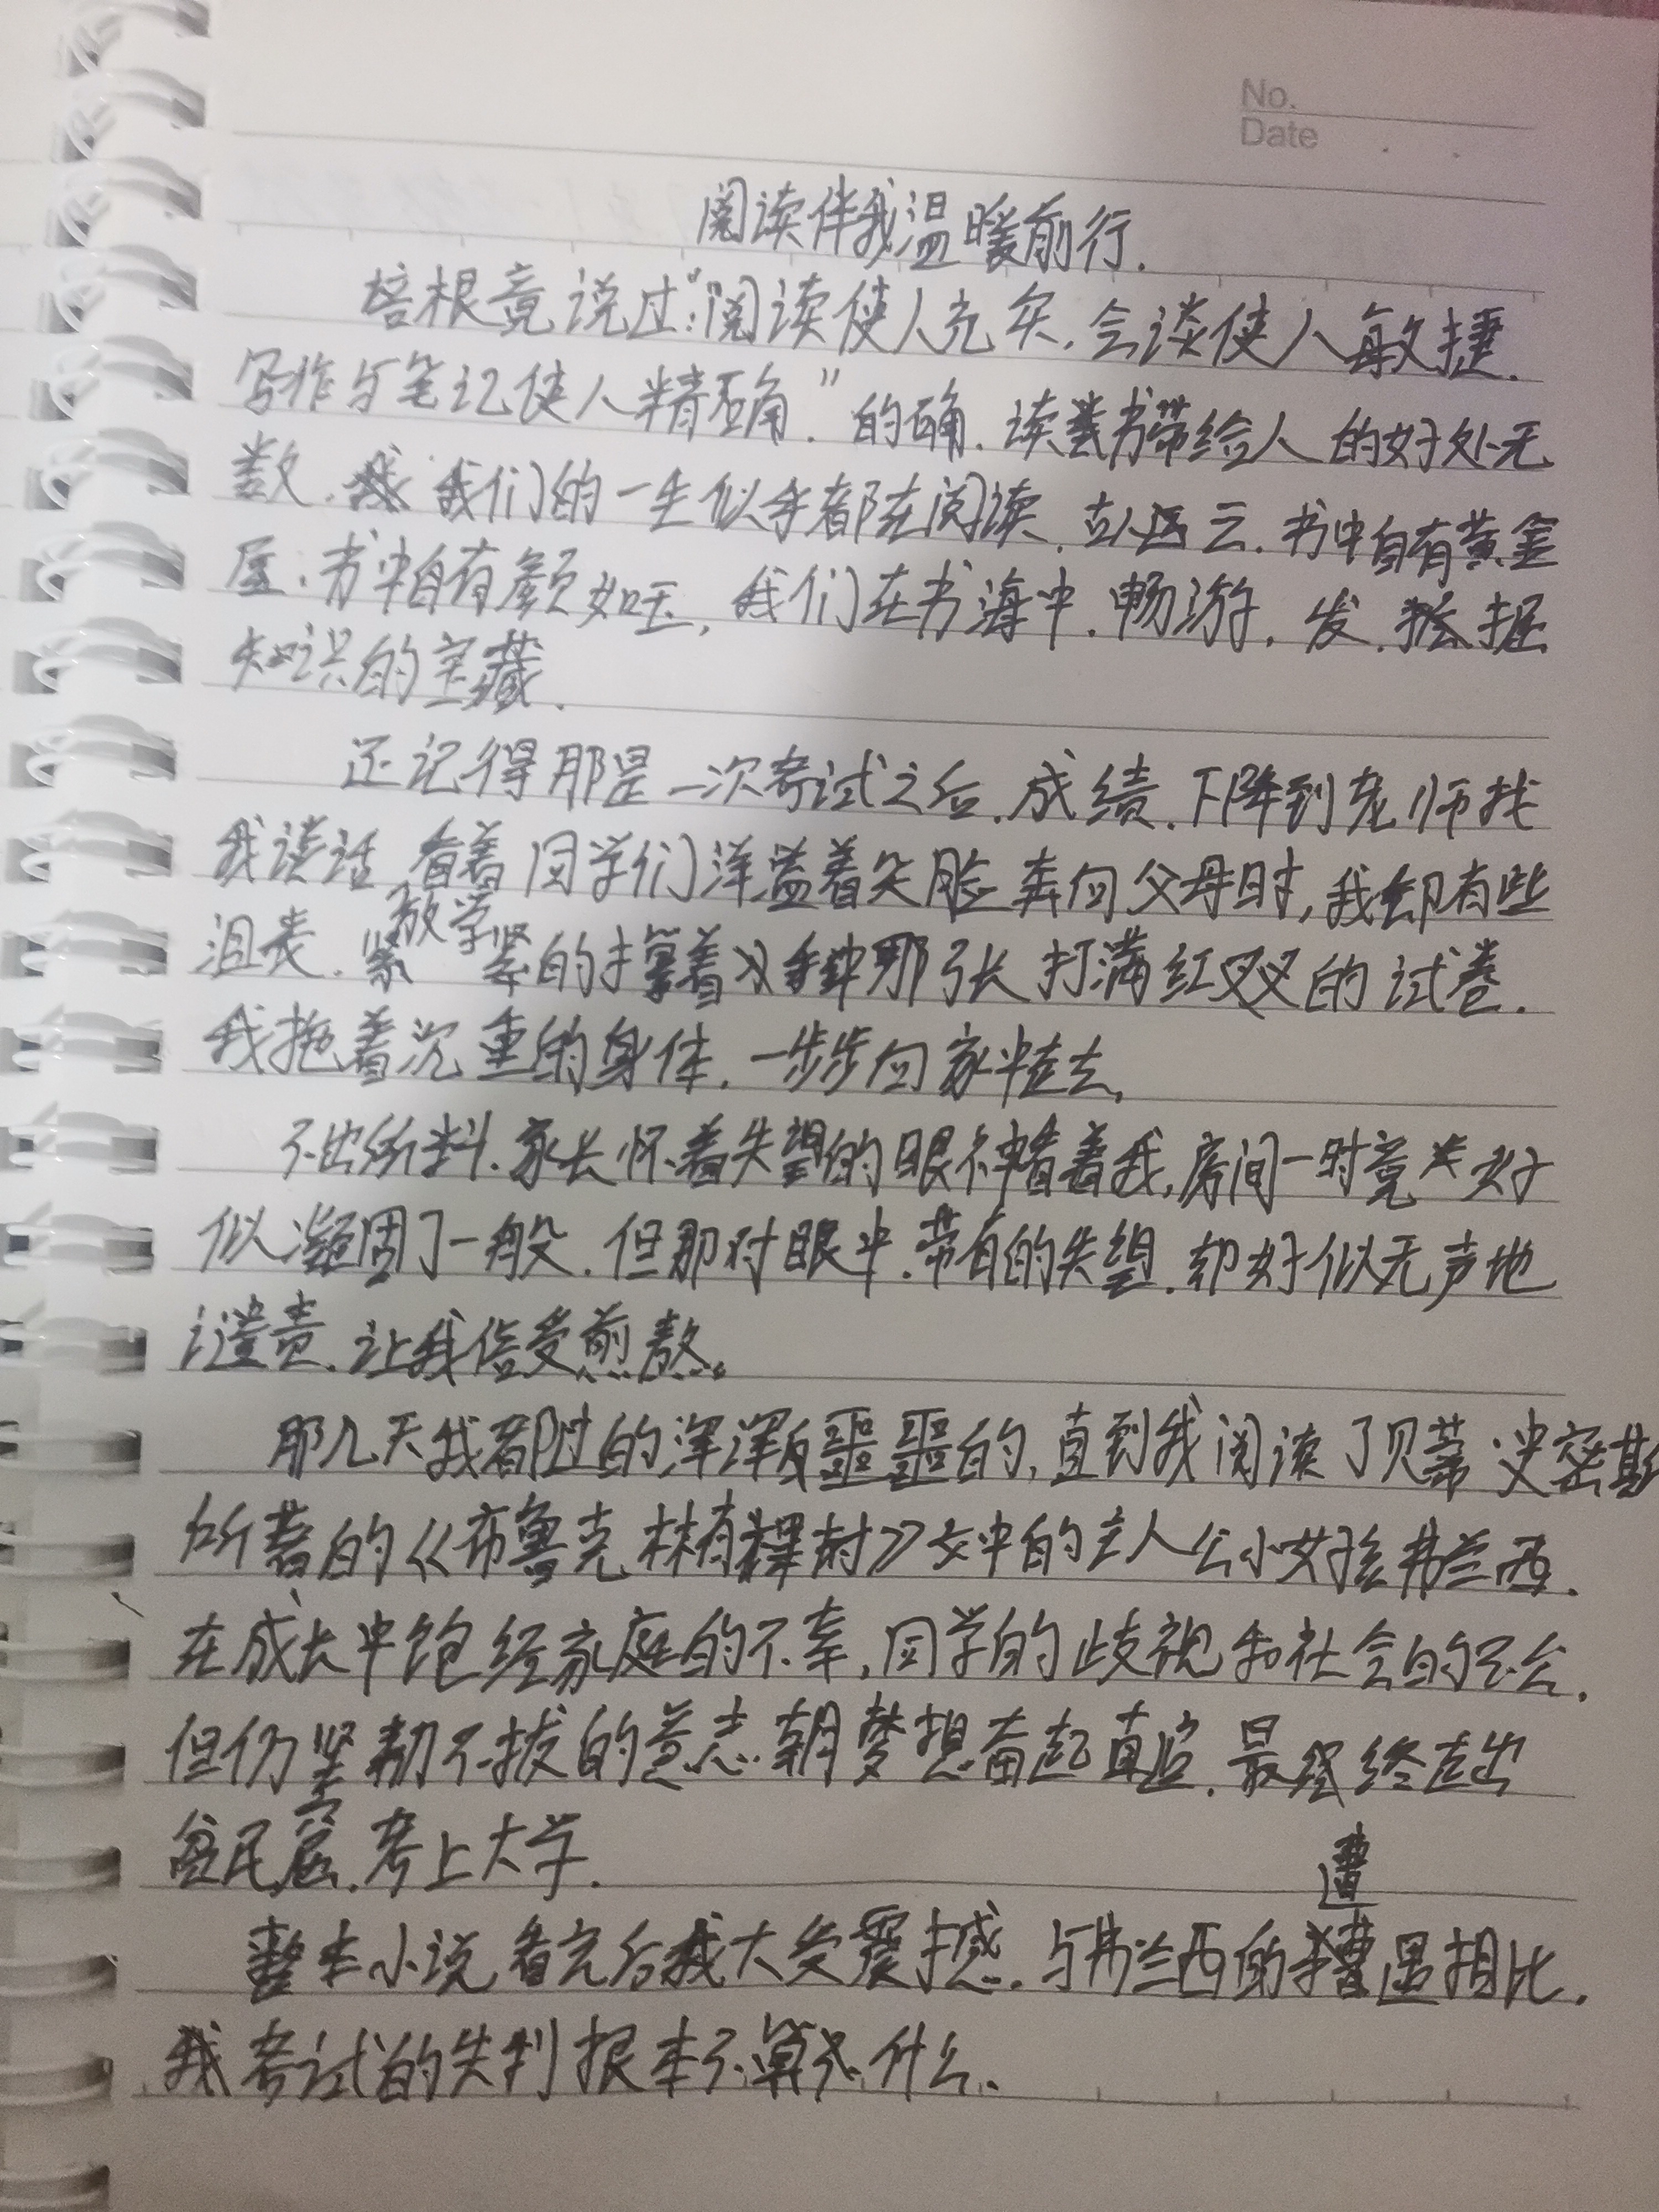 No.
Date
阅读伴我温暖前行.
培根竟说过:"阅读使人充实.会谈使人敏捷.
写作与笔记使人精确."的确.读书带给人的好处无
数.我们的一生似乎都在阅读.古人云.书中自有黄金
屋.书中自有颜如玉,我们在书海中.畅游.发.掘
知识的宝藏.
还记得那是一次考试之后.成绩.下降到老师找
我谈话,看着同学们洋溢着笑脸奔向父母时,我却有些
放学
沮丧.紧紧的攥着手中那张打满红叉叉的试卷.
我拖着沉重的身体.一步步向家中走去,
不出所料.家长怀着失望的眼神看着我,房间一时竟好
似凝固了一般.但那对眼中.带有的失望.却好似无声地
谴责.让我倍受煎熬。
那几天我都过的浑浑噩噩的,直到我阅读了贝蒂·史密斯
所著的《布鲁克林有棵树》文中的主人公小女孩弗兰西.
在成长中饱经家庭的不幸,同学的歧视和社会的不公.
但仍坚韧不拔的意志.朝梦想奋起直追.最终走出
贫民窟.考上大学.
遭
整本小说看完后我大受震撼.与弗兰西的遇相比.
我考试的失利根本不算什么.